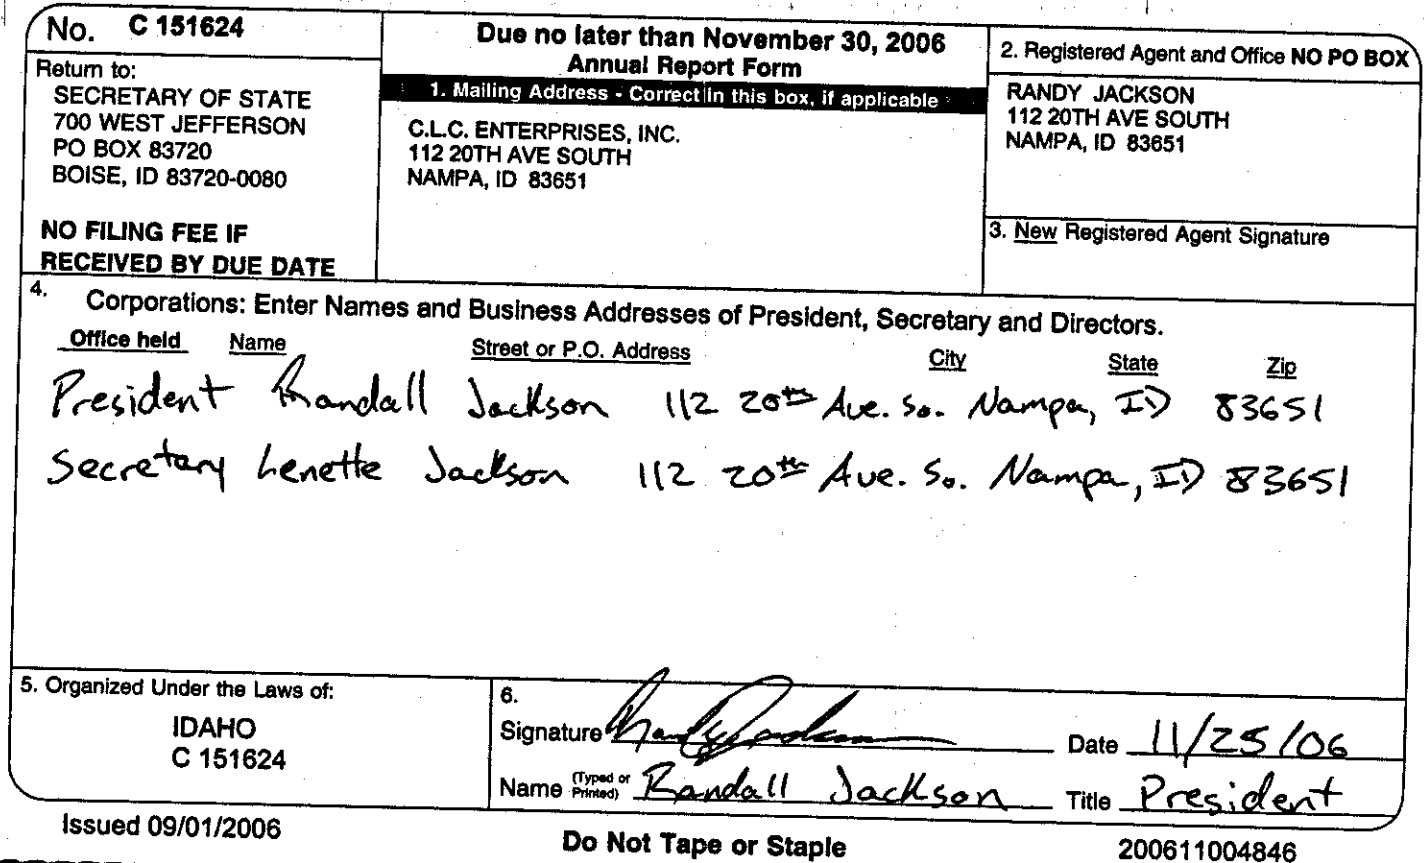 No. C 151624
Return to:
SECRETARY OF STATE
700 WEST JEFFERSON
PO BOX 83720
BOISE, ID 83720-0080
NO FILING FEE IF
RECEIVED BY DUE DATE
Due no later than November 30, 2006
Annual Report Form
1. Mailing Address - Correct in this box, if applicable
C.L.C. ENTERPRISES, INC.
112 20TH AVE SOUTH
NAMPA, ID 83651
2. Registered Agent and Office NO PO BOX
RANDY JACKSON
112 20TH AVE SOUTH
NAMPA, ID 83651
3. New Registered Agent Signature
4. Corporations: Enter Names and Business Addresses of President, Secretary and Directors.
Office held Name Street or P.O. Address City State Zip
President Randall Jackson 112 20th Ave. So. Nampa, ID 83651
Secretary Lenette Jackson 112 20th Ave. So. Nampa, ID 83651
5. Organized Under the Laws of:
IDAHO
C 151624
6.
Signature Randy Jackson Date 11/25/06
Name (Typed or Printed) Randall Jackson Title President
Issued 09/01/2006
Do Not Tape or Staple
200611004846